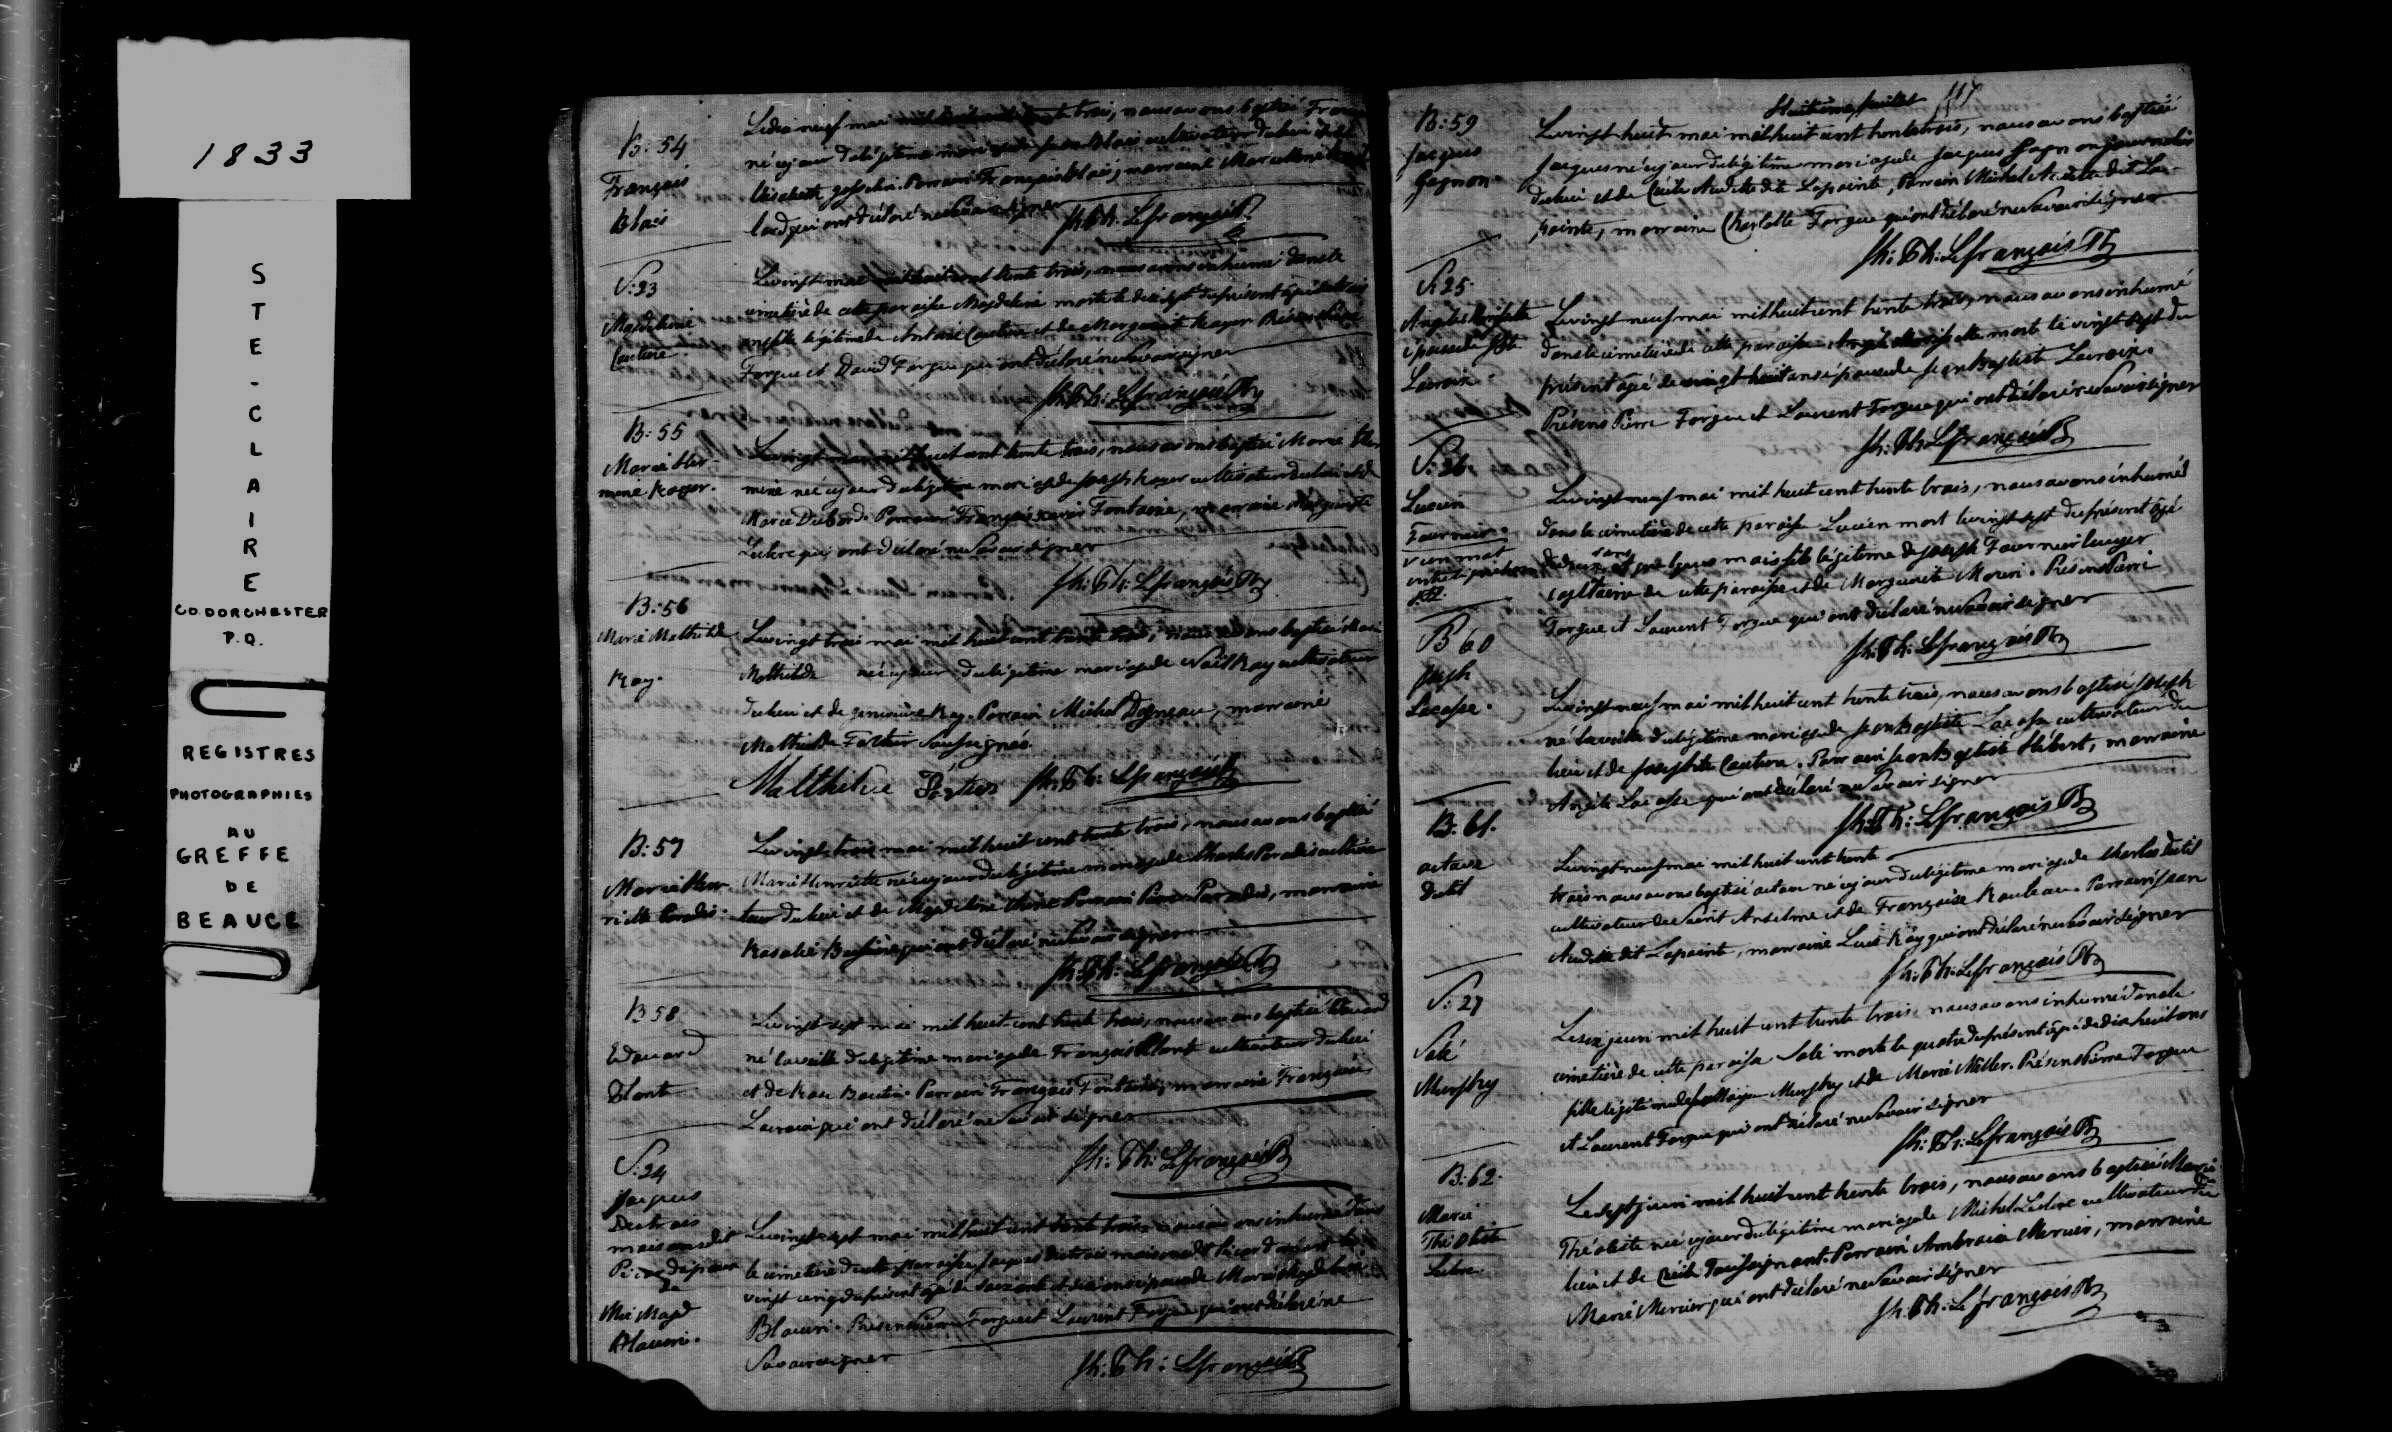 1833
STE-CLAIRE
CO. DORCHESTER
P.Q.
REGISTRES
PHOTOGRAPHIES
AU
GREFFE
DE
BEAUCE
B: 54
François
Blais
Le dix neuf mai mil huit cent trente trois, nous avons baptisé
né ce jour du légitime mariage de Blais cultivateur du lieu et
Parrain François Blais, marraine Marcelline
qui ont déclaré ne savoir signer
Jh. Th: Lefrançois Ptr
S: 23
Magdeleine
Couture.
Le vingt mai mil huit cent trente trois, nous avons inhumé dans le
cimetière de cette paroisse Magdeleine morte le dix sept du présent agée de trois
ans fille légitime de Antoine Couture et de Marguerite Royer Présens Pierre
Forgue et David Forgue qui ont déclaré ne savoir signer
Jh. Th: Lefrançois Ptr
B: 55
Marie Her-
mine Royer.
Le vingt mai mil huit cent trente trois, nous avons baptisé Marie Her
mine née ce jour du légitime mariage de Joseph Royer cultivateur du lieu et de
Marie Dubord. Parrain François Xavier Fontaine, marraine Marguerite
Leclerc qui ont déclaré ne savoir signer
Jh: Th: Lefrançois Ptr
B: 56
Marie Mathilde
Roy.
Le vingt trois mai mil huit cent trente trois, nous avons baptisé Marie
Mathilde née ce jour du légitime mariage de Noël Roy cultivateur
du lieu et de Geneviève Roy. Parrain Michel Dagneau, marraine
Mathilde Fortier soussignés.
Matthilde Fortier Jh. Th: Lefrançois Ptr
B: 57
Marie Hen-
riette Paradis.
Le vingt trois mai mil huit cent trente trois, nous avons baptisé
Marie Henriette née ce jour du légitime mariage de Charles Paradis cultiva-
teur du lieu et de Magdeleine Parrain Pierre Paradis, marraine
Rosalie Bussière qui ont déclaré ne savoir signer
Jh. Th: Lefrançois Ptr
B 58
Edouard
Plont
Le vingt sept mai mil huit cent trente trois, nous avons baptisé Edouard
né la veille du légitime mariage de François Plont cultivateur du lieu
et de Rose Boutin. Parrain François Fontaine, marraine Françoise
Lacroix qui ont déclaré ne savoir signer
Jh. Th: Lefrançois Ptr
S: 24
Jacques
Destrois
maisons dit
Picard époux
de
Mie Magd
Blouin.
Le vingt sept mai mil huit cent trente trois, nous avons inhumé dans
le cimetière de cette paroisse Jacques Destrois maisons dit Picard mort le
vingt cinq du présent agé de soixante et dix ans époux de Marie Magdeleine
Blouin. Présens Pierre Forgue et Laurent Forgue qui ont déclaré ne
savoir signer
Jh. Th: Lefrançois Ptr
Huitième feuillet
B: 59
Jacques
Gagnon.
Le vingt huit mai mil huit cent trente trois, nous avons baptisé
Jacques né ce jour du légitime mariage de Jacques Gagnon journalier
du lieu et de Cécile Audette dite Lapointe, Parrain Michel Audette dit La-
pointe, marraine Charlotte Forgue qui ont déclaré ne savoir signer
Jh: Th: Lefrançois Ptr
S: 25.
épouse de Jn Bte
Lacroix.
Le vingt neuf mai mil huit cent trente trois, nous avons inhumé
dans le cimetière de cette paroisse morte le vingt sept du
présent agée de vingt huit ans épouse de Jean Baptiste Lacroix.
Présens Pierre Forgue et Laurent Forgue qui ont déclaré ne savoir signer
Jh. Th: Lefrançois Ptr
S: 26
Lucien
Fournier.
un mot
Le vingt neuf mai mil huit cent trente trois, nous avons inhumé
dans le cimetière de cette paroisse Lucien mort le vingt sept du présent agé
de deux ans et quelques mois fils légitime de Joseph Fournier
capitaine de cette paroisse et de Marguerite Morin. Présens Pierre
Forgue et Laurent Forgue qui ont déclaré ne savoir signer
Jh. Th: Lefrançois Ptr
B 60
Joseph
Lacasse.
Le vingt neuf mai mil huit cent trente trois, nous avons baptisé Joseph
né la veille du légitime mariage de Jean Baptiste Lacasse cultivateur du
lieu et de Josephte Couture. Parrain Jean Baptiste Hébert, marraine
Angèle Lacasse qui ont déclaré ne savoir signer
Jh: Th: Lefrançois Ptr
B: 61.
octave
Dutil
Le vingt neuf mai mil huit cent trente
trois nous avons baptisé octave né ce jour du légitime mariage de Charles Dutil
cultivateur de Saint Anselme et de Françoise Rouleau. Parrain Jean
Audette dit Lapointe, marraine Luce Roy qui ont déclaré ne savoir signer
Jh. Th: Lefrançois Ptr
S: 27
Murphy
Le six juin mil huit cent trente trois, nous avons inhumé dans le
cimetière de cette paroisse morte le quatre du présent agée de dix huit ans
fille légitime de Murphy et de Marie Miller. Présens Pierre Forgue
et Laurent Forgue qui ont déclaré ne savoir signer
Jh. Th: Lefrançois Ptr
B: 62.
Marie
Théotiste
Leclerc.
Le sept juin mil huit cent trente trois, nous avons baptisé Marie
Théotiste née ce jour du légitime mariage de Michel Leclerc cultivateur du
lieu et de Cécile Toussignant. Parrain Ambroise Mercier, marraine
Marie Mercier qui ont déclaré ne savoir signer
Jh. Th: Lefrançois Ptr